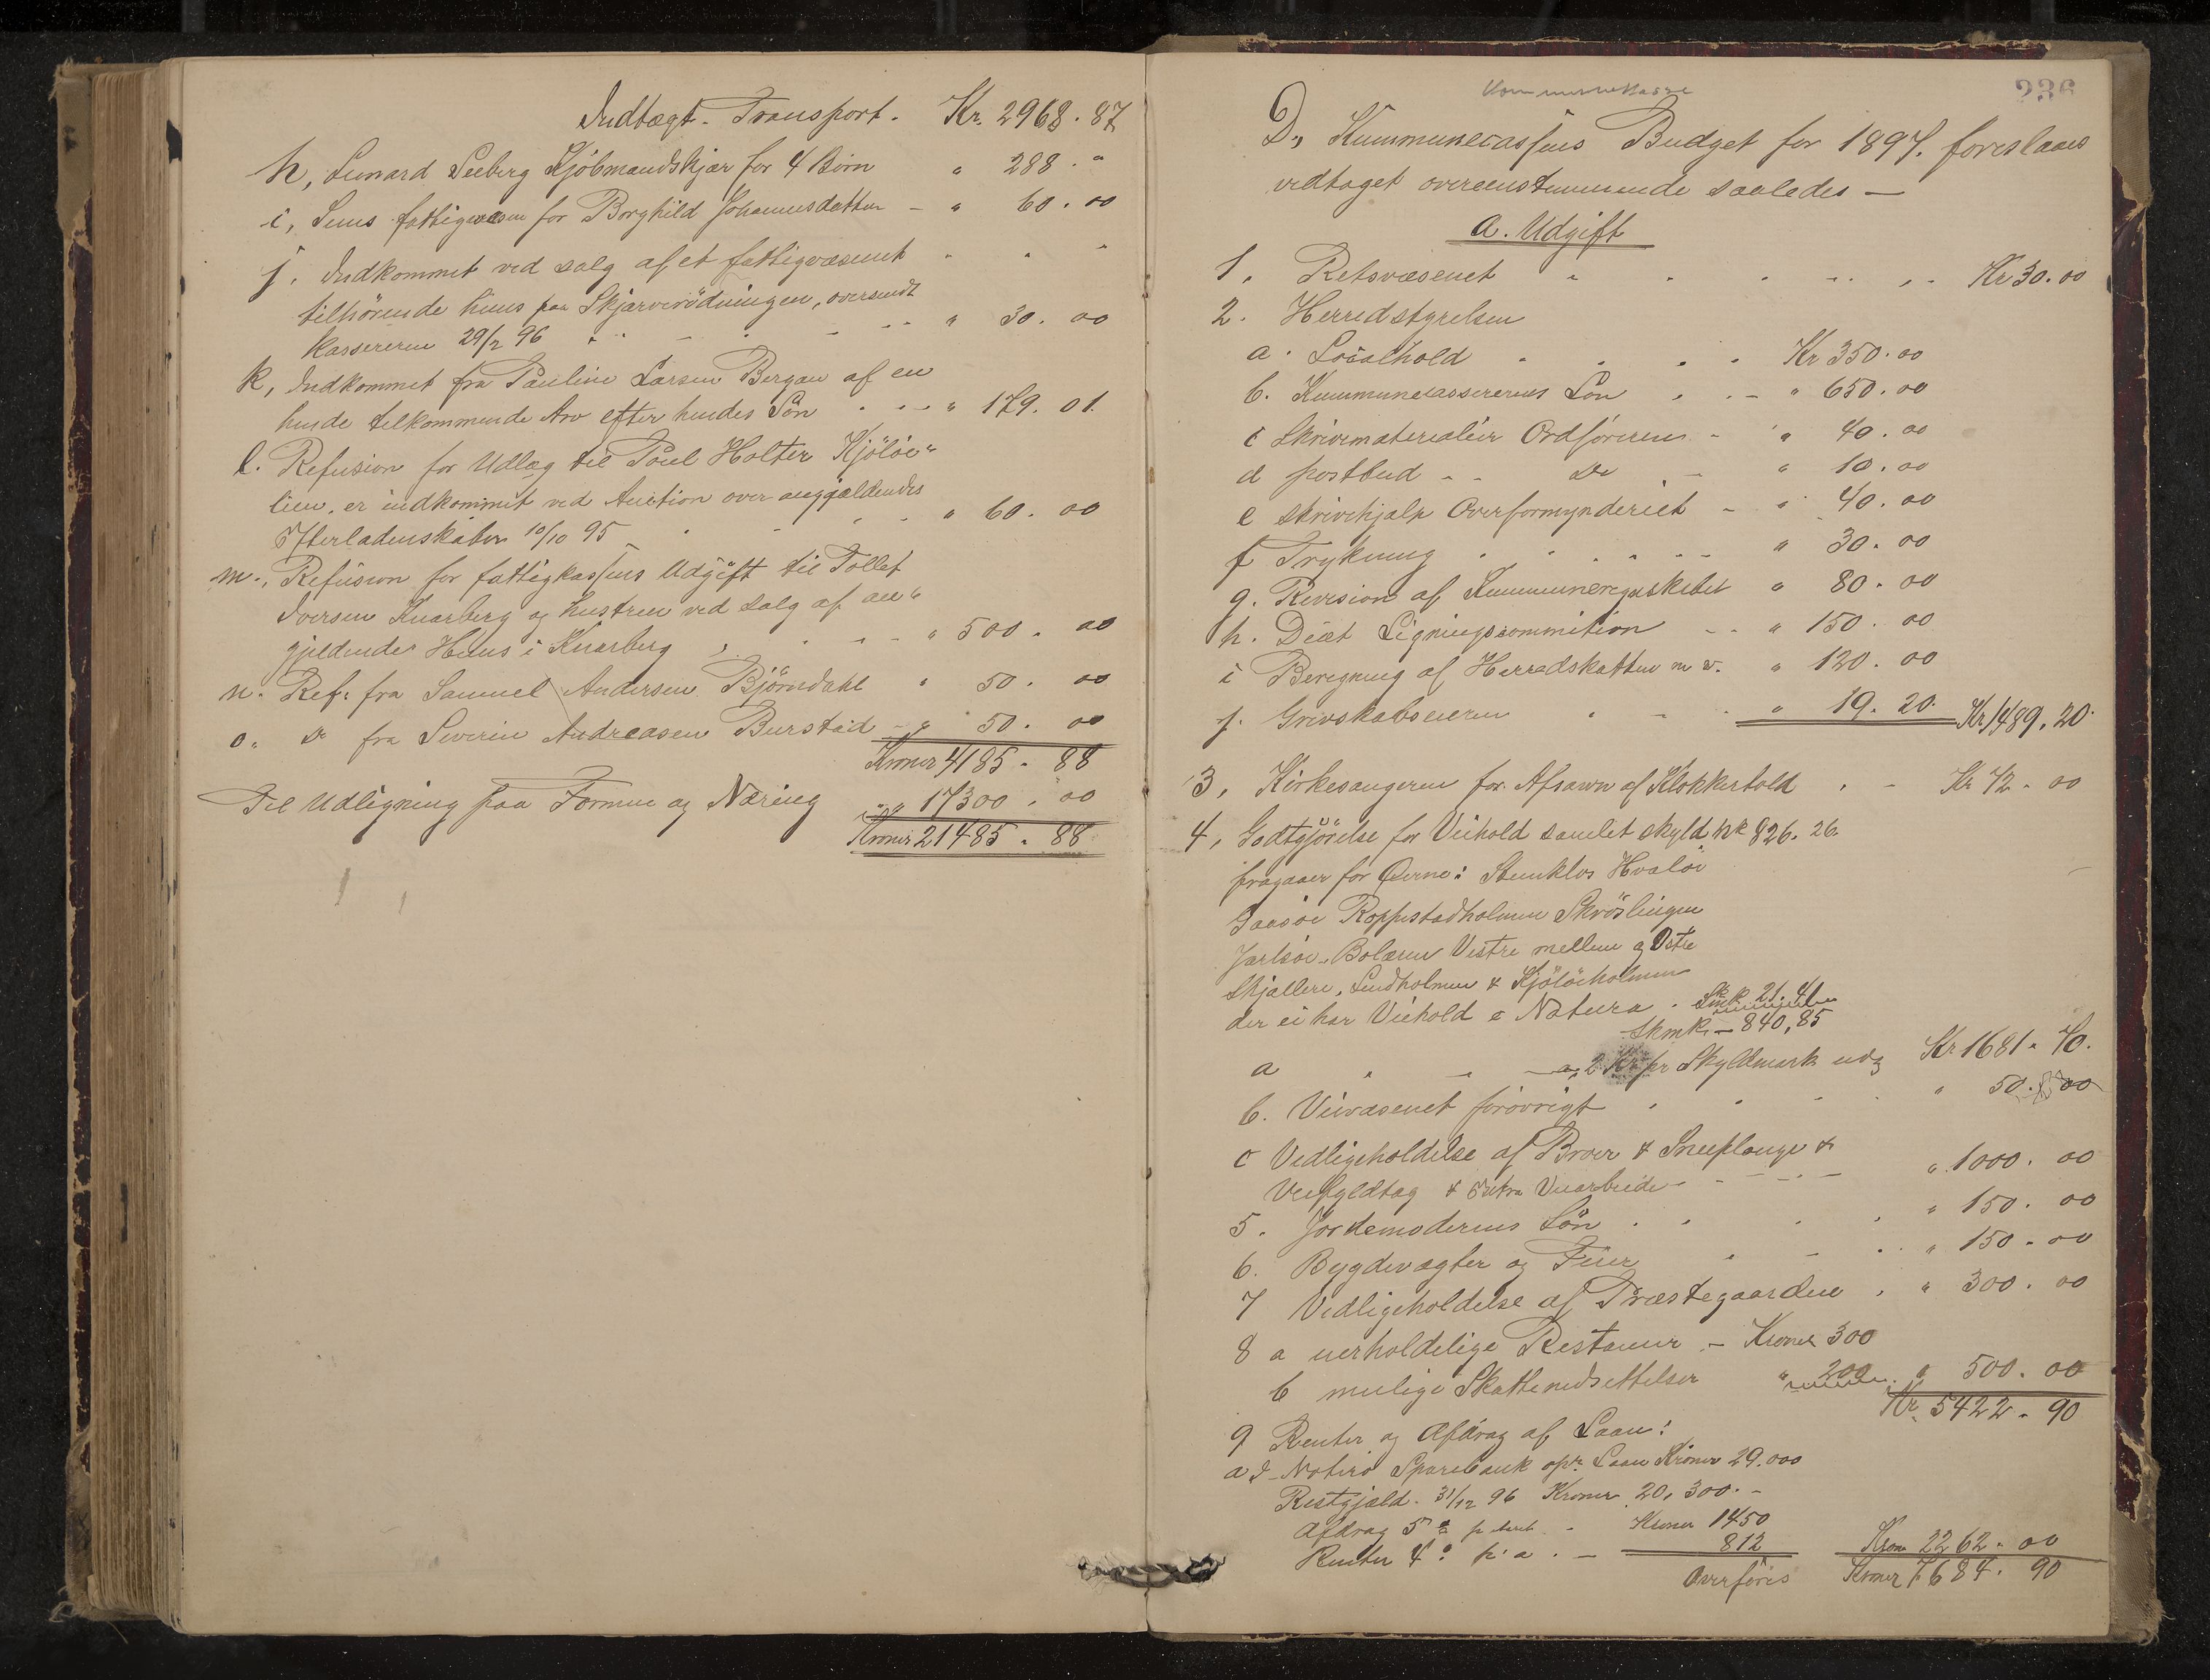 Indtægt - Transport - Kr. 2968.87
h, Lenard Seeberg Kjøbmandskjær for 4 Børn " 288."
i, Sems fattigvæsen for Borghild Johannesdatter - " 60.00
j. Indkommet ved salg af et fattigvæsenet
tilhørende huus paa Skjærverødningen, oversendt
kassereren 29/2 96 " 30.00
k, Indkommet fra Pauline Larsen Bergan af en
hende tilkommende Arv efter hendes Søn " 179.01.
l. Refusion for Udlæg til Poul Holter Kjøløe"
lien, er indkommet ved Auction over angjældendes
Efterladenskaber 10/10 95 " 60.00
m., Refusion for fattigkassens Udgift til Tollef
Iversen Knarberg og hustru ved salg af an"
gjeldendes Huus i Knarberg " 500.00
n. Ref. fra Samuel Andersen Bjørndahl " 50.00
o. Do fra Severin Andreasen Burstad - " 50.00
Kroner 4185.88
Til Udligning paa Formue og Næring " 17300.00
Kroner 21485.88
236
Kommunekasse
D, Kummunecassens Budget for 1897. foreslaaes
vedtaget overeenstemmende saaledes —
a. Udgift
1. Retsvæsenet Kr 30.00
2. Herredstyrelsen
a. Localhold Kr 350.00
b. Kummunecassererens Løn " 650.00
c Skrivematerialier Ordføreren - " 40.00
d postbud - - Do - " 10.00
e skrivehjælp Overformynderiet - " 40.00
f Trykning " 30.00
g. Revision af Kummuneregnskabet " 80.00
h. Diæt Ligningscommition - - " 150.00
i Beregning af Herredskatten m v. " 120.00
j. " 19.20. Kr 1489.20.
3, Kirkesangeren for Afsavn af Klokkertold Kr 72.00
4, Godtgjørelse for Veihold samlet skyld mk 826.26.
fragaaer for Øerne: Stenklos Hvaløe
Gaasøe Roppestadholmen Skrøslingen
Jarlsøe, Bolæren Vestre mellem og Østre
Skjellere, Lindholmen & Kjøløeholmen
der ei har Veihold e Natura. Skmk 21.41
Skmk — 840,85
a 2 Kr pr Skyldmark udg Kr 1681.70.
b. Veivæsenet forøvrigt " 50.00
c Vedligeholdelse af Broer & Sneeplouge &
Veifyldtag & Extra Veiarbeide " 1000.00
5. Jordemoderens Løn " 150.00
6. Bygdevægter og Feier " 150.00
7 Vedligeholdelse af Præstegaarden " 300.00
8 a uerholdelige Restancer - Kroner 300
b mulige Skattenedsettelser " 200 " 500.00
Kr. 5422.90
9 Renter og Afdrag af Laan:
a I Nøterø Sparebank opr. Laan Kroner 29.000
Restgjæld. 31/12 96 Kroner 20,300.-
Afdrag 5% pr Aaret - Kroner 1450
Renter 4% p. a. - 812 Kron 2262.00
Overføres Kroner 7684.90